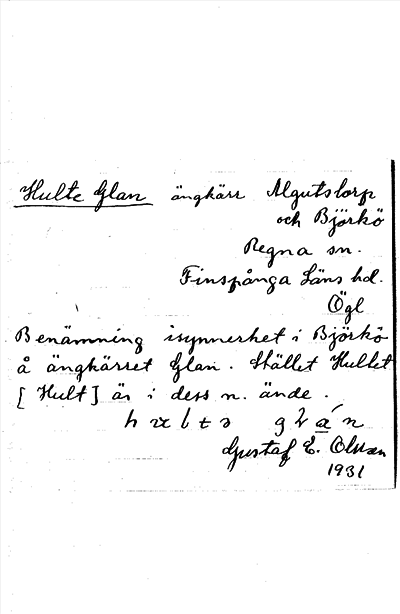 Hulte Glan ängkärr Algutstorp
och Björkö
Regna sn.
Finspånga Läns hd.
Ögl
Benämning isynnerhet i Björkö
å ängkärret Glan. Stället Hultet
[Hult] är i dess n. ände.
Gustaf E. Olsson
1931